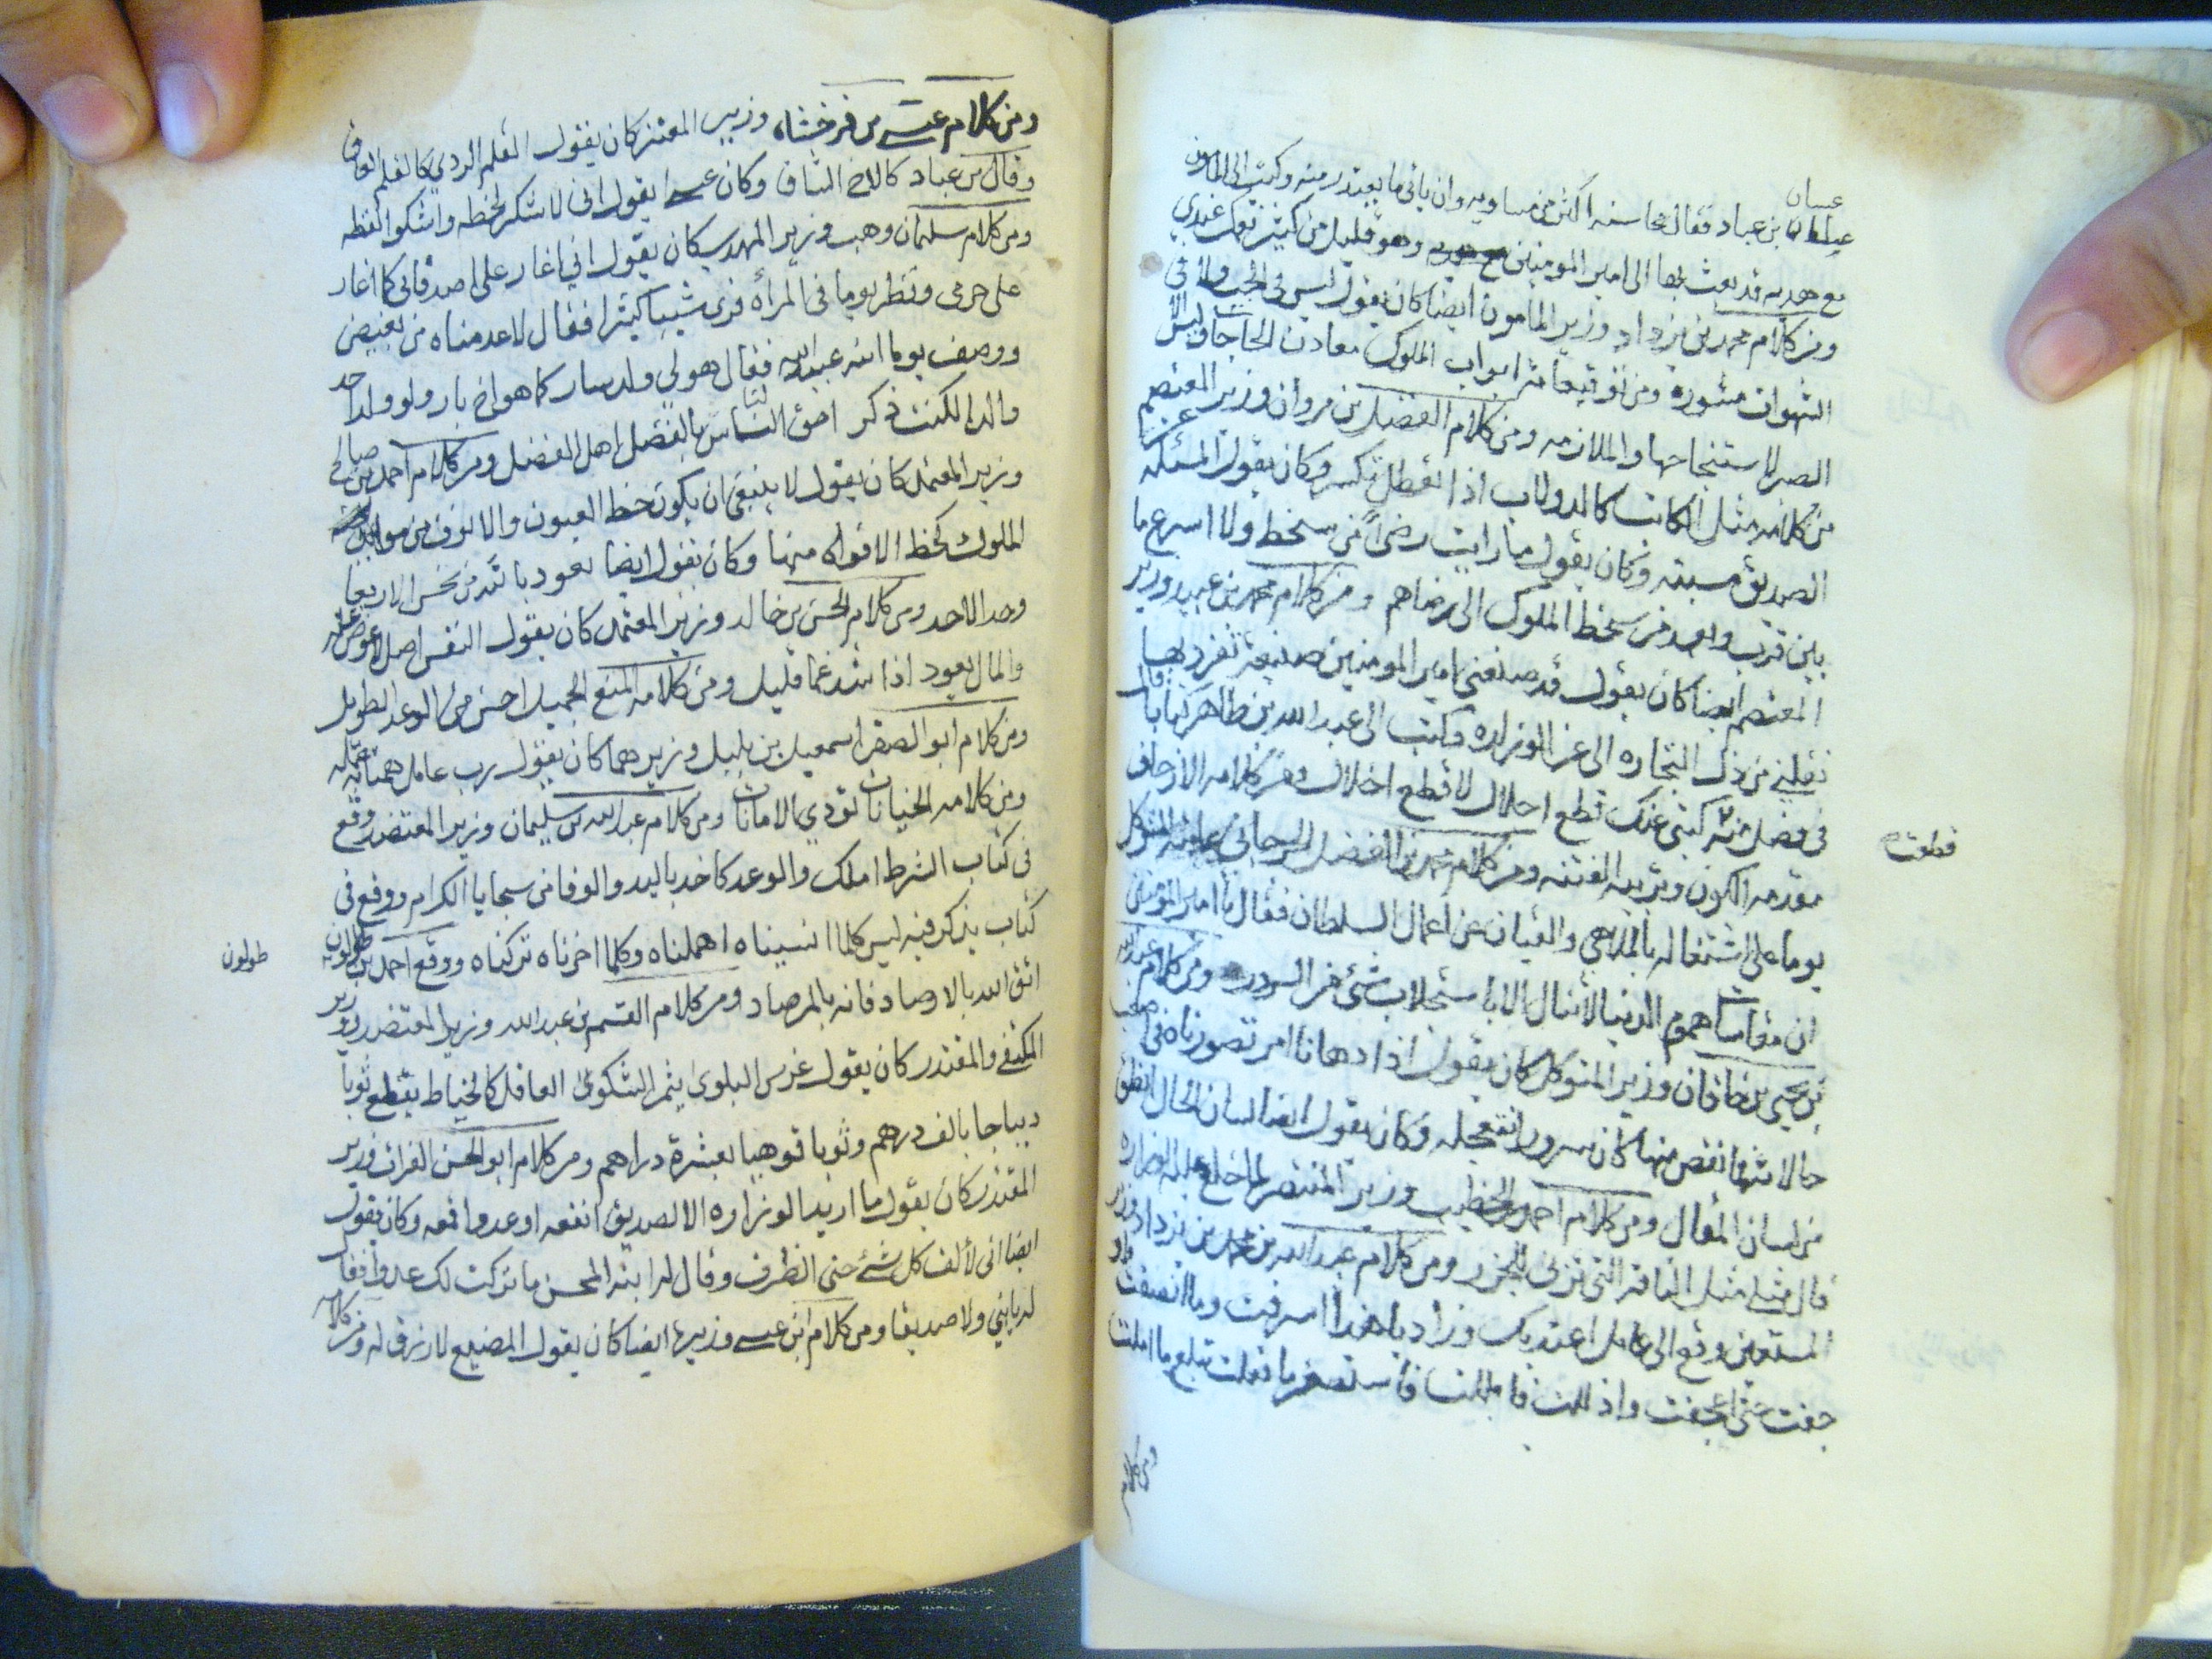 غسان
بن عباد فقال محاسنه اكثر من مساويه وان ياتي ما يعتذر منه وكتب الى المامون
مع هديه قد بعث بها الى امير المومنين وهو قليل من كثير عندي
ومن كلام محمد بن يزداد وزير المامون ايضا كان يقول ليس في الحب ولا في
الشهوات مشوره ومن توقيعاته ابواب الملوك معادن الحاجات وليس الا
الصبر لاستنجاحها والملازمه ومن كلام الفضل بن مروان وزير المعتصم
من كلامه مثل الكاتب كالدولاب اذا تعطل تكسر وكان يقول المسئله عن
الصديق مسبته وكان يقول ما رايت رضى من سخط ولا اسرع ما
بين قرب وبعد من سخط الملوك الى رضاهم ومن كلام محمد بن عبيد وزير
المعتصم ايضا كان يقول قد صنعني امير المومنين صنيعة تفرد بها
نقلني من ذل التجاره الى عز الوزاره وكتب الى عبد الله بن طاهر كتابا قال
في فصل منه كتبي عنك قطع اجلال لا قطع اخلال ومن كلامه الارجاف
قطعت
مقدمه الكون وبريد الفتنه ومن كلام محمد بن الفضل الجرجاني عاتبه المتوكل
يوما على اشتغاله بالملاهي والقيان عن اعمال السلطان فقال يا امير المومنين
ان مقاساة هموم الدنيا لا تنال الا باستجلاب شئ من السرور ومن كلام عبيد الله
بن يحيى بن خاقان وزير المتوكل كان يقول اذا دهانا امر تصورناه في اصعب
حالاته فما نقص منها كان سرورا نتعجله وكان يقول ايضا لسان الحال انطق
من لسان المقال ومن كلام احمد بن الخطيب وزير المنتصر لما خلع عليه للوزاره
قال مثلي مثل الناقة التي تزين للنحر ومن كلام عبد الله بن محمد بن يزداد وزير
المستعين وقع الى عامل اعتد بك وزاد يا هذا اسرفت وما انصفت واو
جفت حتى اعجفت واذللت فامللت فاستصغر ما فعلت تبلغ ما املت
ومن كلام
ومن كلام عيسى بن فرخشاه وزير المعتز كان يقول القلم الردي كالقلم العاق
وقال بن عباد كالاخ الشاق وكان عيسى يقول اني لاشكر لحظه واشكو لفظه
ومن كلام سليمان وهب وزير المهدي كان يقول اني اغار على اصدقائي كما اغار
على حرمي ونظر يوما في المرأة فرى شيبا كثيرا فقال لاعدمناه من بغيض
ووصف يوما ابنه عبيد الله فقال هو لي ولد سار كما هو اخ بار ولو ولد احد
والدا لكنت ذكر احق الناس بالفضل اهل الفضل ومن كلام احمد بن صالح
وزير المعتمد كان يقول لا ينبغي ان يكون حظ العيون والانوف من موائد
الملوك كحظ الافواه منها وكان يقول ايضا نعوذ بالله من نحس الاربعا
وحد الاحد ومن كلام الحسن بن خالد وزير المعتمد كان يقول النفس اصل لا عوض عنه
والمال يعود اذا شذ عما قليل ومن كلامه المنع الجميل احسن من الوعد الطويل
ومن كلام ابو الصقر اسمعيل بن بلبل وزيرهما كان يقول رب عامل همته عمله
ومن كلامه الخيانات تؤدي الامانات ومن كلام عبد الله بن سليمان وزير المعتضد وقع
في كتاب الشرط املك والوعد كاخذ باليد والوفا من سجايا الكرام ووقع في
كتاب يذكر فيه ليس كلما انسيناه اهملناه وكلما اخرناه تركناه ووقع احمد بن طولون
طولون
اتق الله بالارصاد فانه بالمرصاد ومن كلام القسم بن عبد الله وزير المعتضد وزير
المكتفي والمقتدر كان يقول غرس البلوى يثمر الشكوى العاقل كالخياط يقطع ثوبا
ديباجا بالف درهم وثوبا قوهيا بعشرة دراهم ومن كلام ابو الحسن الفرات وزير
المقتدر كان يقول ما اريد الوزاره الا لصديق انفعه او عدو اقمعه وكان يقول
ايضا اني لألف كل شئ حتى الطرف وقال له ابنه المحسن ما تركت لك عدوا فقال
له يابني ولا صديقا ومن كلام ابن عيسى وزيرها ايضا كان يقول المضيع لا رزق له ومن كلامه